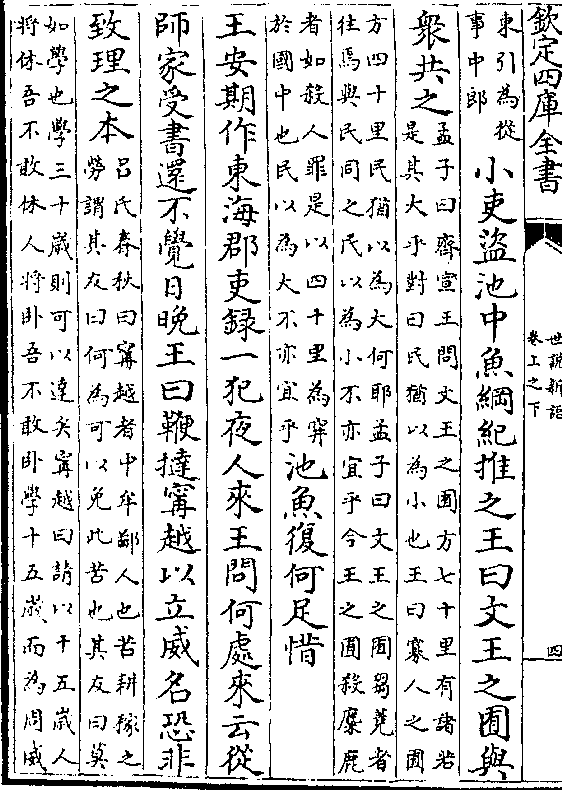 欽定四庫全書
世説新語
卷上之下
四
東引為從
事中郎
小吏盜池中魚綱紀推之王曰文王之囿與
衆共之
孟子曰齊宣王問文王之囿方七十里有諸若
是其大乎對曰民猶以為小也王曰寡人之囿
方四十里民猶以為大何耶孟子曰文王之囿芻蕘者
往焉與民同之民以為小不亦宜乎今王之囿殺麋鹿
者如殺人罪是以四十里為穽
於國中也民以為大不亦宜乎
池魚復何足惜
王安期作東海郡吏録一犯夜人來王問何處來云從
師家受書還不覺日晚王曰鞭撻寗越以立威名恐非
致理之本
呂氏春秋曰寗越者中牟鄙人也苦耕稼之
勞謂其友曰何為可以免此苦也其友曰莫
如學也學三十歲則可以達矣寗越曰請以十五歲人
將休吾不敢休人將卧吾不敢卧學十五歲而為周威